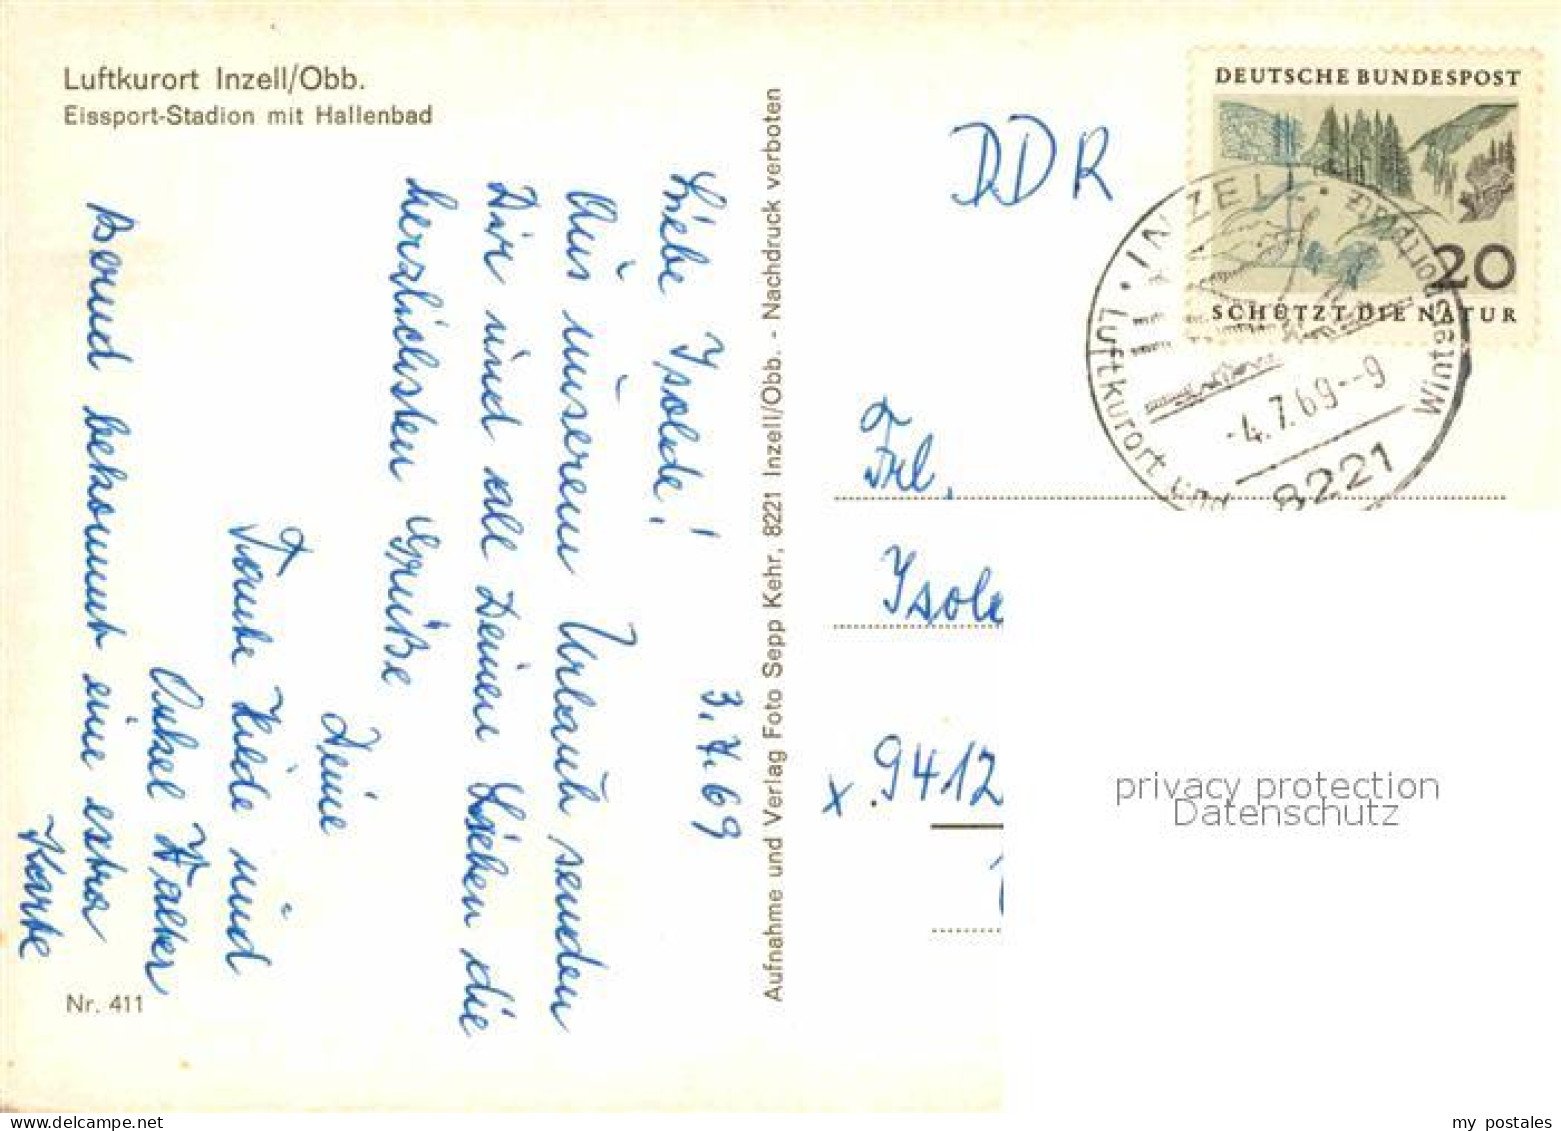 Luftkurort Inzell/Obb.
Eissport-Stadion mit Hallenbad
3.7.69
Liebe Isolde!
Aus unserem Urlaub senden
Dir und all Deinen Lieben die
herzlichsten Grüße
Deine
Tante Hilde und
Onkel Walter
Bernd bekommt eine extra
Karte
Nr. 411
Aufnahme und Verlag Foto Sepp Kehr, 8221 Inzell/Obb. - Nachdruck verboten
DDR
DEUTSCHE BUNDESPOST
20
SCHÜTZT DIE NATUR
INZELL
Luftkurort und Wintersportplatz
-4.7.69--9
8221
Frl.
Isol
x 9412
privacy protection
Datenschutz
my postales